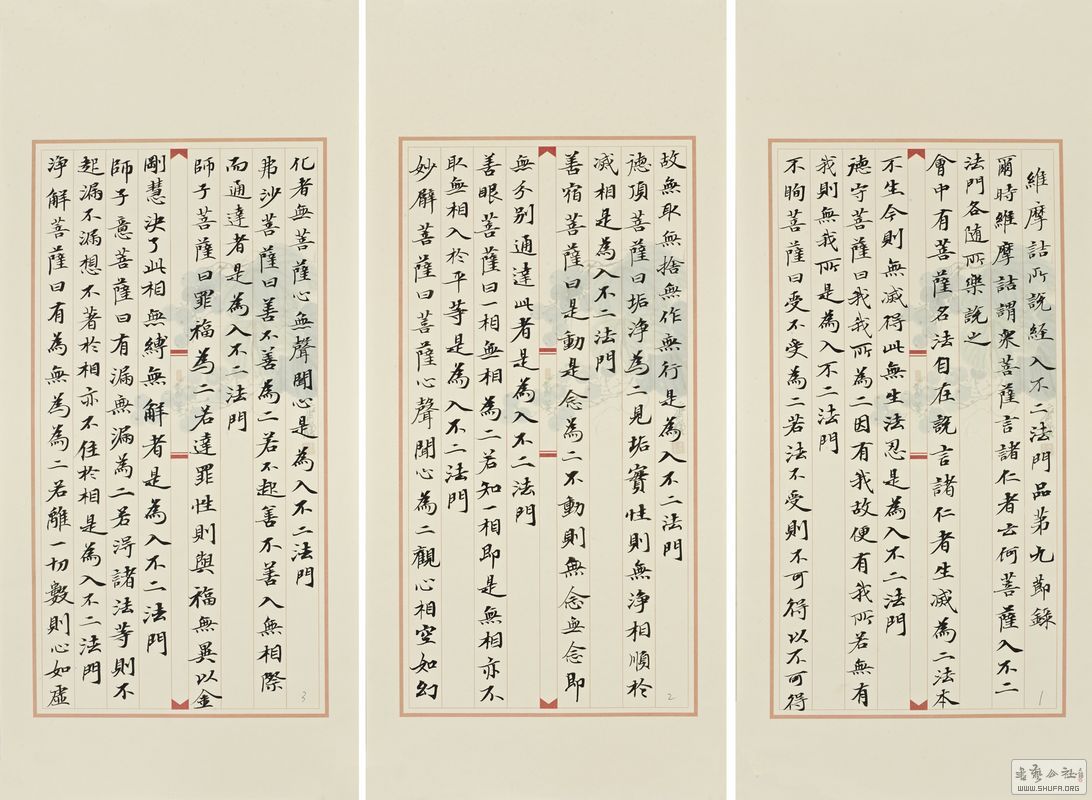 維摩詰所說経入不二法門品苐九節錄
爾時維摩詰謂衆菩薩言諸仁者云何菩薩入不二
法門各随所樂說之
會中有菩薩名法自在說言諸仁者生滅為二法本
不生今則無滅得此無生法忍是為入不二法門
德守菩薩曰我我所為二因有我故便有我所若無有
我則無我所是為入不二法門
不眴菩薩曰受不受為二若法不受則不可得以不可得
1
故無取無捨無作無行是為入不二法門
德頂菩薩曰垢淨為二見垢實性則無淨相順於
滅相是為入不二法門
善宿菩薩曰是動是念為二不動則無念無念即
無分別通達此者是為入不二法門
善眼菩薩曰一相無相為二若知一相即是無相亦不
取無相入於平等是為入不二法門
妙臂菩薩曰菩薩心聲聞心為二觀心相空如幻
2
化者無菩薩心無聲聞心是為入不二法門
弗沙菩薩曰善不善為二若不起善不善入無相際
而通達者是為入不二法門
師子菩薩曰罪福為二若達罪性則與福無異以金
剛慧決了此相無縛無解者是為入不二法門
師子意菩薩曰有漏無漏為二若淂諸法等則不
起漏不漏想不著於相亦不住於相是為入不二法門
淨解菩薩曰有為無為為二若離一切數則心如虛
3
書藝公社
WWW.SHUFA.ORG